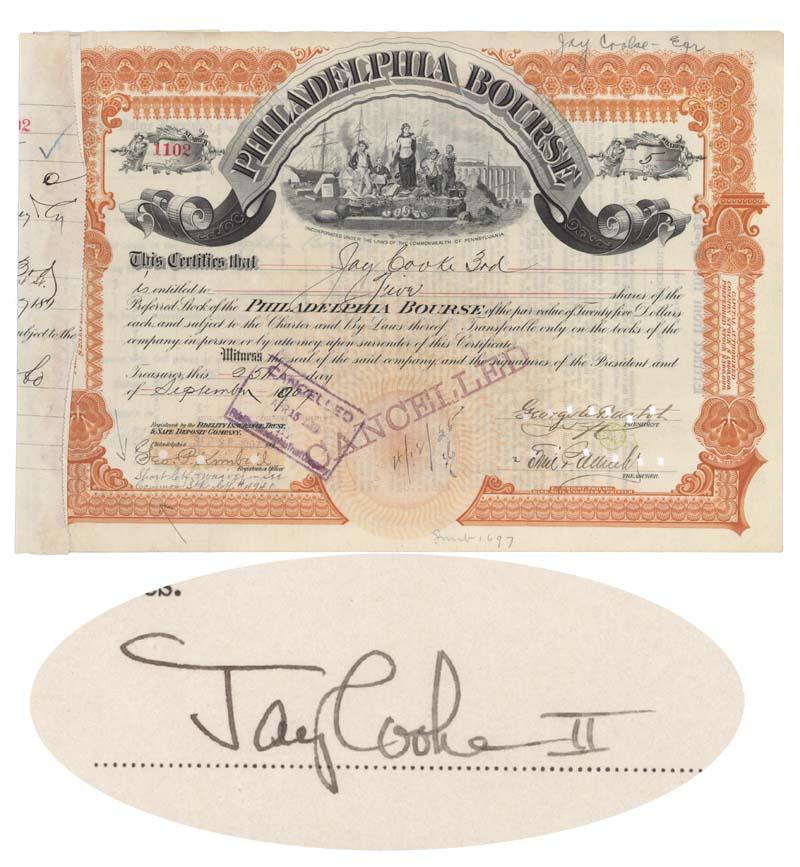 Jay Cooke - Eqr
PHILADELPHIA BOURSE
02
NUMBER
1102
SHARES
5
INCORPORATED UNDER THE LAWS OF THE COMMONWEALTH OF PENNSYLVANIA
This Certifies that Jay Cooke 3rd
is entitled to Five shares of the
Preferred Stock of the PHILADELPHIA BOURSE of the par value of Twenty five Dollars
each and subject to the Charter and By Laws thereof. Transferable only on the books of the
company in person or by attorney upon surrender of this Certificate.
Witness the seal of the said company, and the signatures of the President and
Treasurer this 25th day
of September
subject to the
CAPITAL AUTHORIZED
CANCELLED
CANCELLED
Registered by the FIDELITY INSURANCE, TRUST,
& SAFE DEPOSIT COMPANY.
Philadelphia
Registration Officer
PRESIDENT
TREASURER
es.
Jay Cooke II